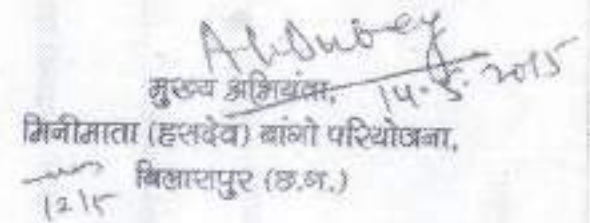 A.K.Dubey
14.5.2015
मुख्य अभियंता,
मिनीमाता (हसदेव) बांगो परियोजना,
बिलासपुर (छ.ग.)
12/5